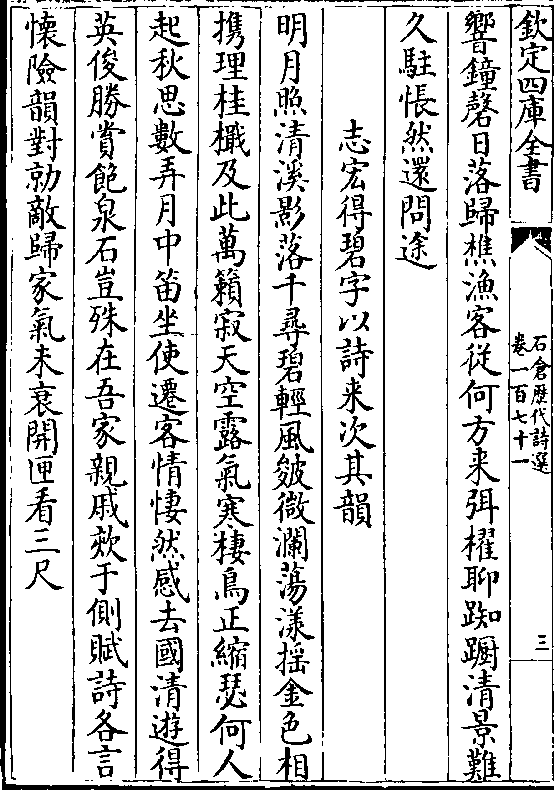 欽定四庫全書
石倉歷代詩選
卷一百七十一
三
響鐘磬日落歸樵漁客從何方来弭櫂聊踟躕清景難
久駐悵然還問途
志宏得碧字以詩来次其韻
明月照清溪影落千尋碧輕風皴微瀾蕩漾揺金色相
携理桂檝及此萬籟寂天空露氣寒棲鳥正縮瑟何人
起秋思數弄月中笛坐使遷客情悽然感去國清遊得
英俊勝賞飽泉石豈殊在吾家親戚欬于側賦詩各言
懐險韻對勍敵歸家氣未衰開匣看三尺